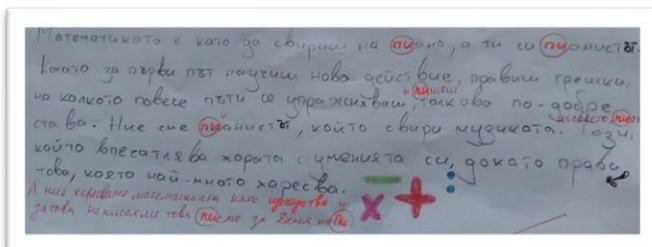 Математиката е като да свириш на пиано, а ти си пианистът.
Когато за първи път научиш ново действие, правиш грешки,
и пишеш
но колкото повече пъти се упражняваш, толкова по-добре
става. Ние сме пианистът, който свири музиката. Този,
който впечатлява хората с уменията си, докато прави
това, което най-много харесва.
А ние харесваме математиката като изкуство и
затова написахме това писмо за Деня на Пи.
− × + :